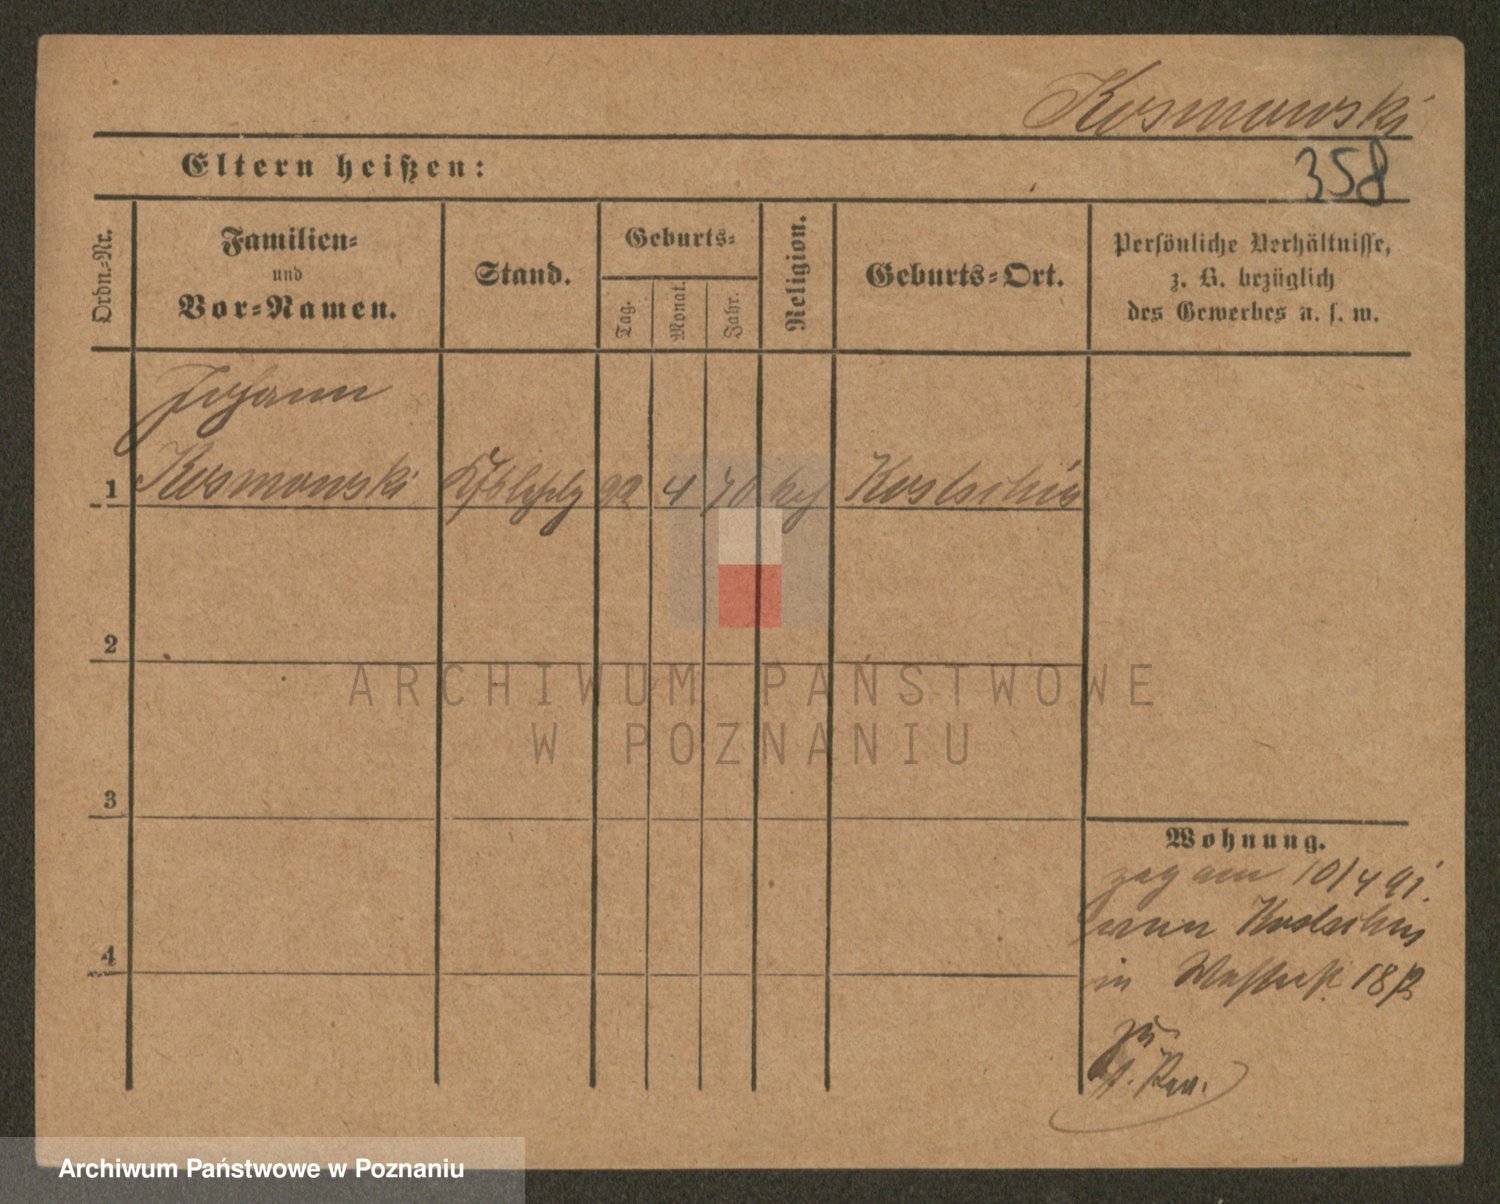 Kosmowski
358
Eltern heißen:
Ordn.-Nr.
Familien-
und
Vor-Namen.
Stand.
Geburts-
Tag.
Monat.
Jahr.
Religion.
Geburts-Ort.
Persönliche Verhältnisse,
z. B. bezüglich
des Gewerbes u. s. w.
Johann
1 Kosmowski 4 70 Kostschin
2
3
4
ARCHIWUM PAŃSTWOWE
W POZNANIU
Wohnung.
zog am 10/4 91.
von Kostschin
in 18
zu
Archiwum Państwowe w Poznaniu